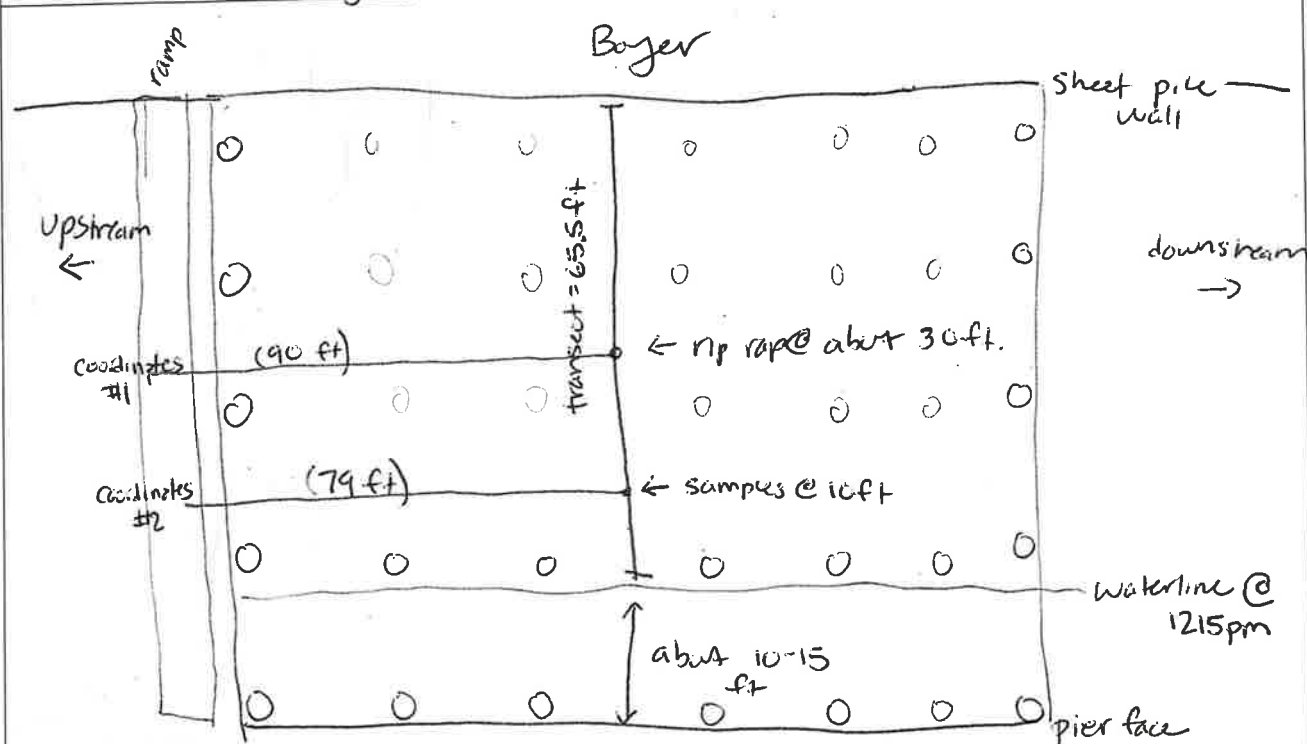 ramp
Boyer
Sheet pile
wall
upstream
←
downstream
→
transect = 65.5 ft
coordinates
#1
(90 ft)
← rip rap @ about 30 ft.
coordinates
#2
(79 ft)
← samples @ 10ft
waterline @
1215pm
about 10-15
ft
pier face